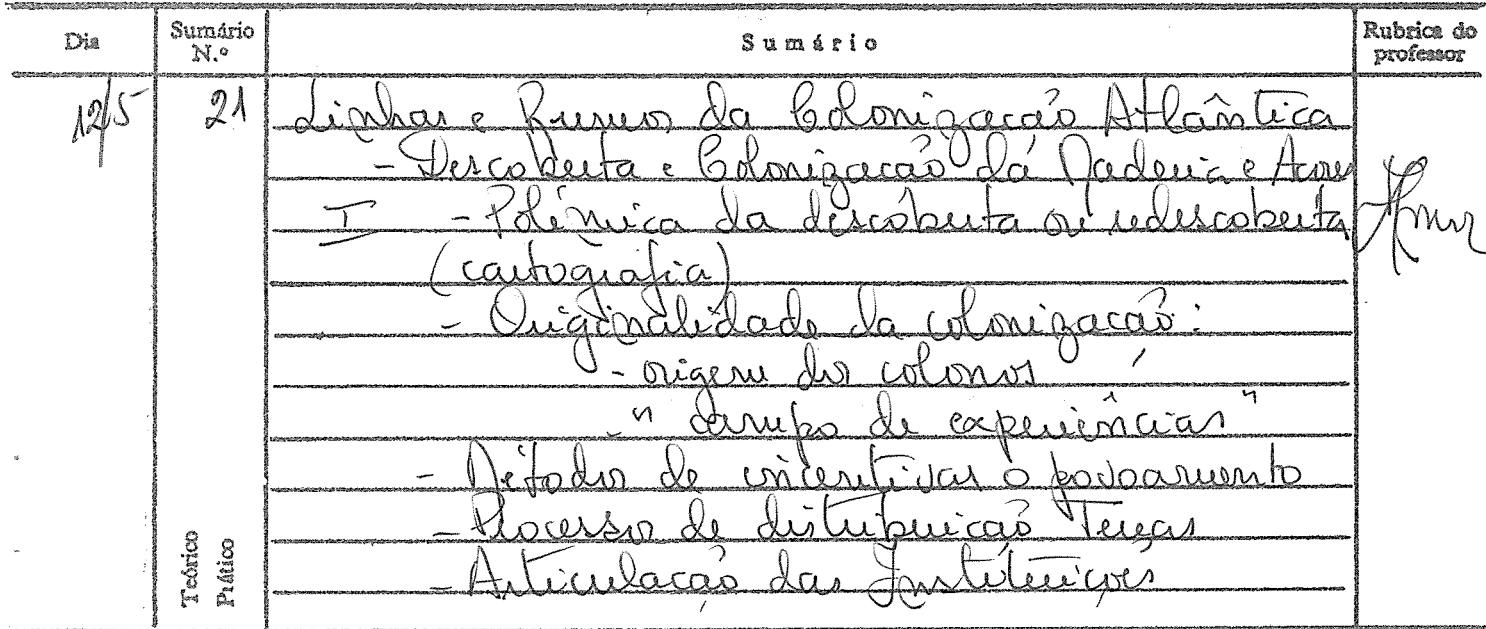 Dia Sumário N.º Sumário Rubrica do professor
12/5 21 Linhas e Rumos da Colonização Atlântica
- Descoberta e Colonização da Madeira e Açores
I - Polémica da descoberta ou redescoberta
(cartografia)
- Originalidade da colonização:
- origem dos colonos
- "campo de experiências"
- Métodos de incentivar o povoamento
- Processo de distribuição Terras
- Articulação das Instituições
Teórico
Prático